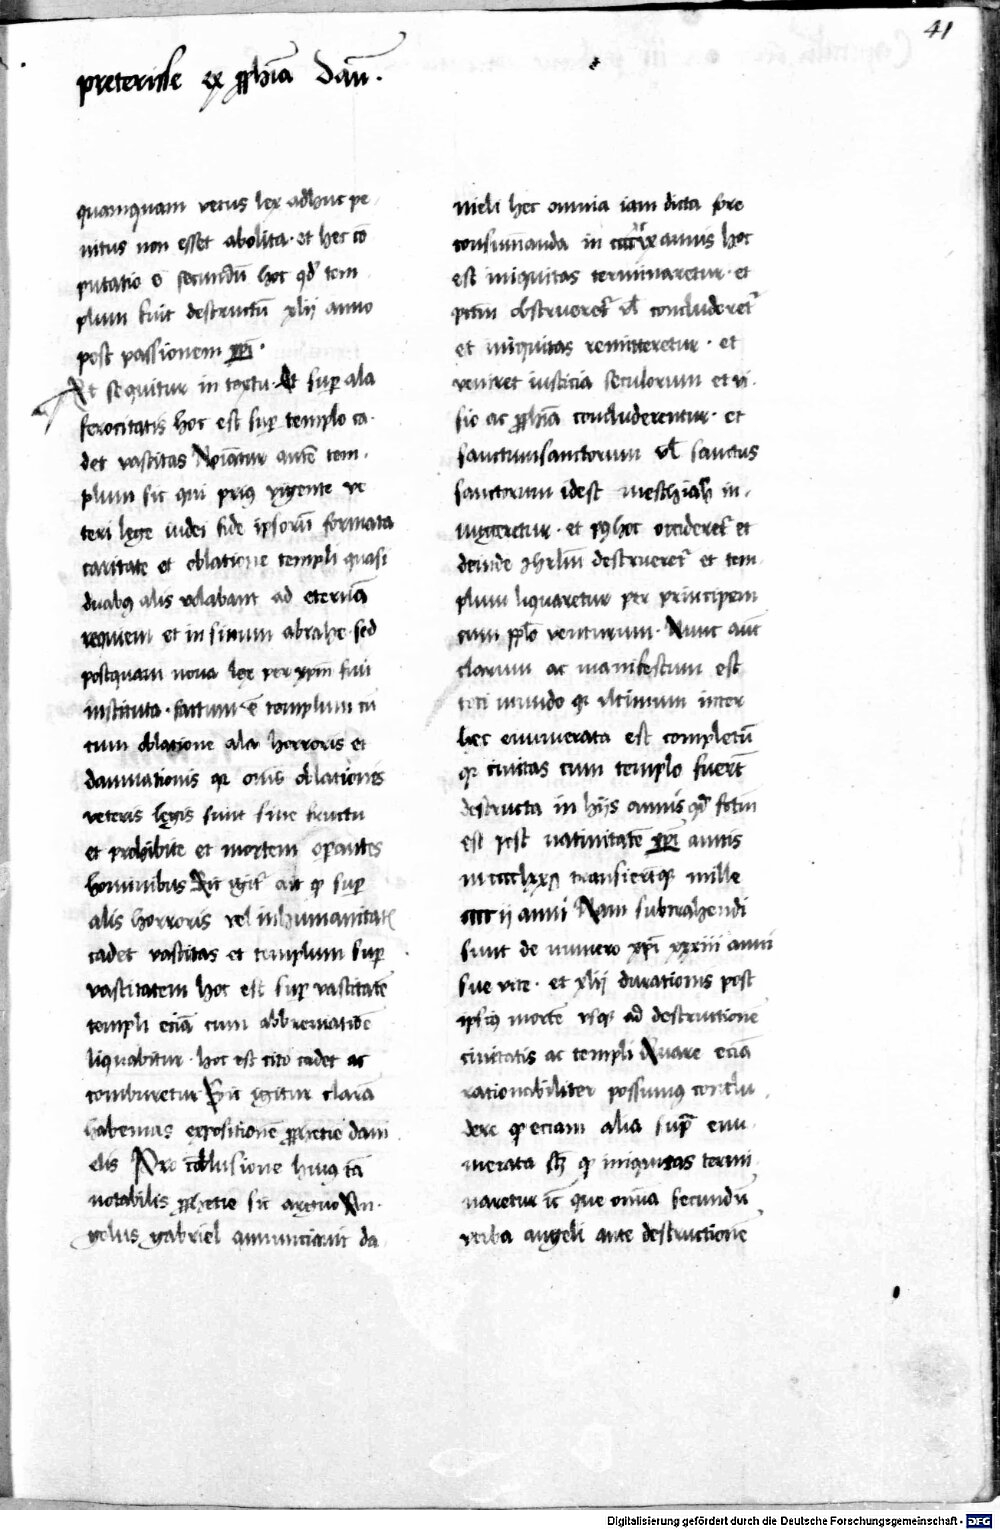 41
preterisse ex ꝓphīa Daū.
quamquam vetus lex adhuc pe
nitus non esset abolita. et hec cō
putatio ē secundū hoc qd tem
plum fuit destructū xlij anno
post passionem xp̄i.
Et sequitur in textu. Et sup ala
ferocitatis hoc est sup templo ca.
det vastitas Noīatur autē tem.
plum sic qui prius vigente ve
teri lege iudei fide ipsorū formata
caritate et oblatione templi quasi
duabꝰ alis volabant ad eternā
requiem et in sinum abrahe. sed
postquam noua lex per xpm fuit
instituta. factum ē templum cū
cum oblatione ala horroris et
damnationis qr om̄is oblationes
veteris legis sunt sine fructu
et prohibite et mortem operantes
hominibus Sic igit ait qp sup
alis horroris vel inhumanitatis
cadet vastitas et templum sup
vastitatem hoc est sup vastitatē
templi eciā cum abbreviatiōe
liquabitur. hoc est cito cadet ac
comburetur Sic igitur clarā
habemus expositionē ꝓphetie dani
elis Pro cōclusione huiꝰ tā
notabilis ꝓphetie sic arguo An.
gelus gabriel annunciauit da
nieli hec omnia iam dicta fore
consumanda in annis hoc
est iniquitas terminaretur. et
pctm obstrueret vl concluderet
et iniquitas remitteretur. et
veniret iusticia seculorum et vi.
sio ac ꝓphīa concluderentur. et
sanctumsanctorum vl sanctus
sanctorum idest meschiah in.
ungeretur. et p9 hoc occideret et
deinde ihrlm destrueret et tem.
plum liquaretur per principem
cum pplo venturum. Nunc aut
clarum ac manifestum est
toti mundo qr ultimum inter
hec enumerata est completū
qr ciuitas cum templo fuert
destructa in hijs annis qd fctm
est post natiuitatē xp̄i annis
transierūtqꝫ mille
cccc ij anni Nam subtrahendi
sunt de numero xp̄i xxxiii anni
sue vite. et xlij durationis post
ipsius mortē vsqꝫ ad destructionē
ciuitatis ac templi Quare eciā
rationabiliter possumꝰ conclu.
dere qp eciam alia supra enu.
merata sꝫ qp iniquitas termi.
naretur ic que om̄ia secundū
verba angeli ante destructionē
Digitalisierung gefördert durch die Deutsche Forschungsgemeinschaft - DFG